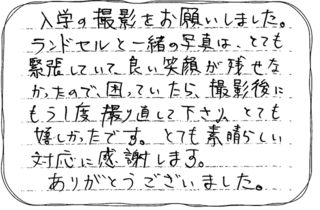 入学の撮影をお願いしました。
ランドセルと一緒の写真は、とても
緊張していて、良い笑顔が残せな
かったので、困っていたら、撮影後に
もう1度撮り直して下さり、とても
嬉しかったです。とても素晴らしい
対応に感謝します。
ありがとうございました。